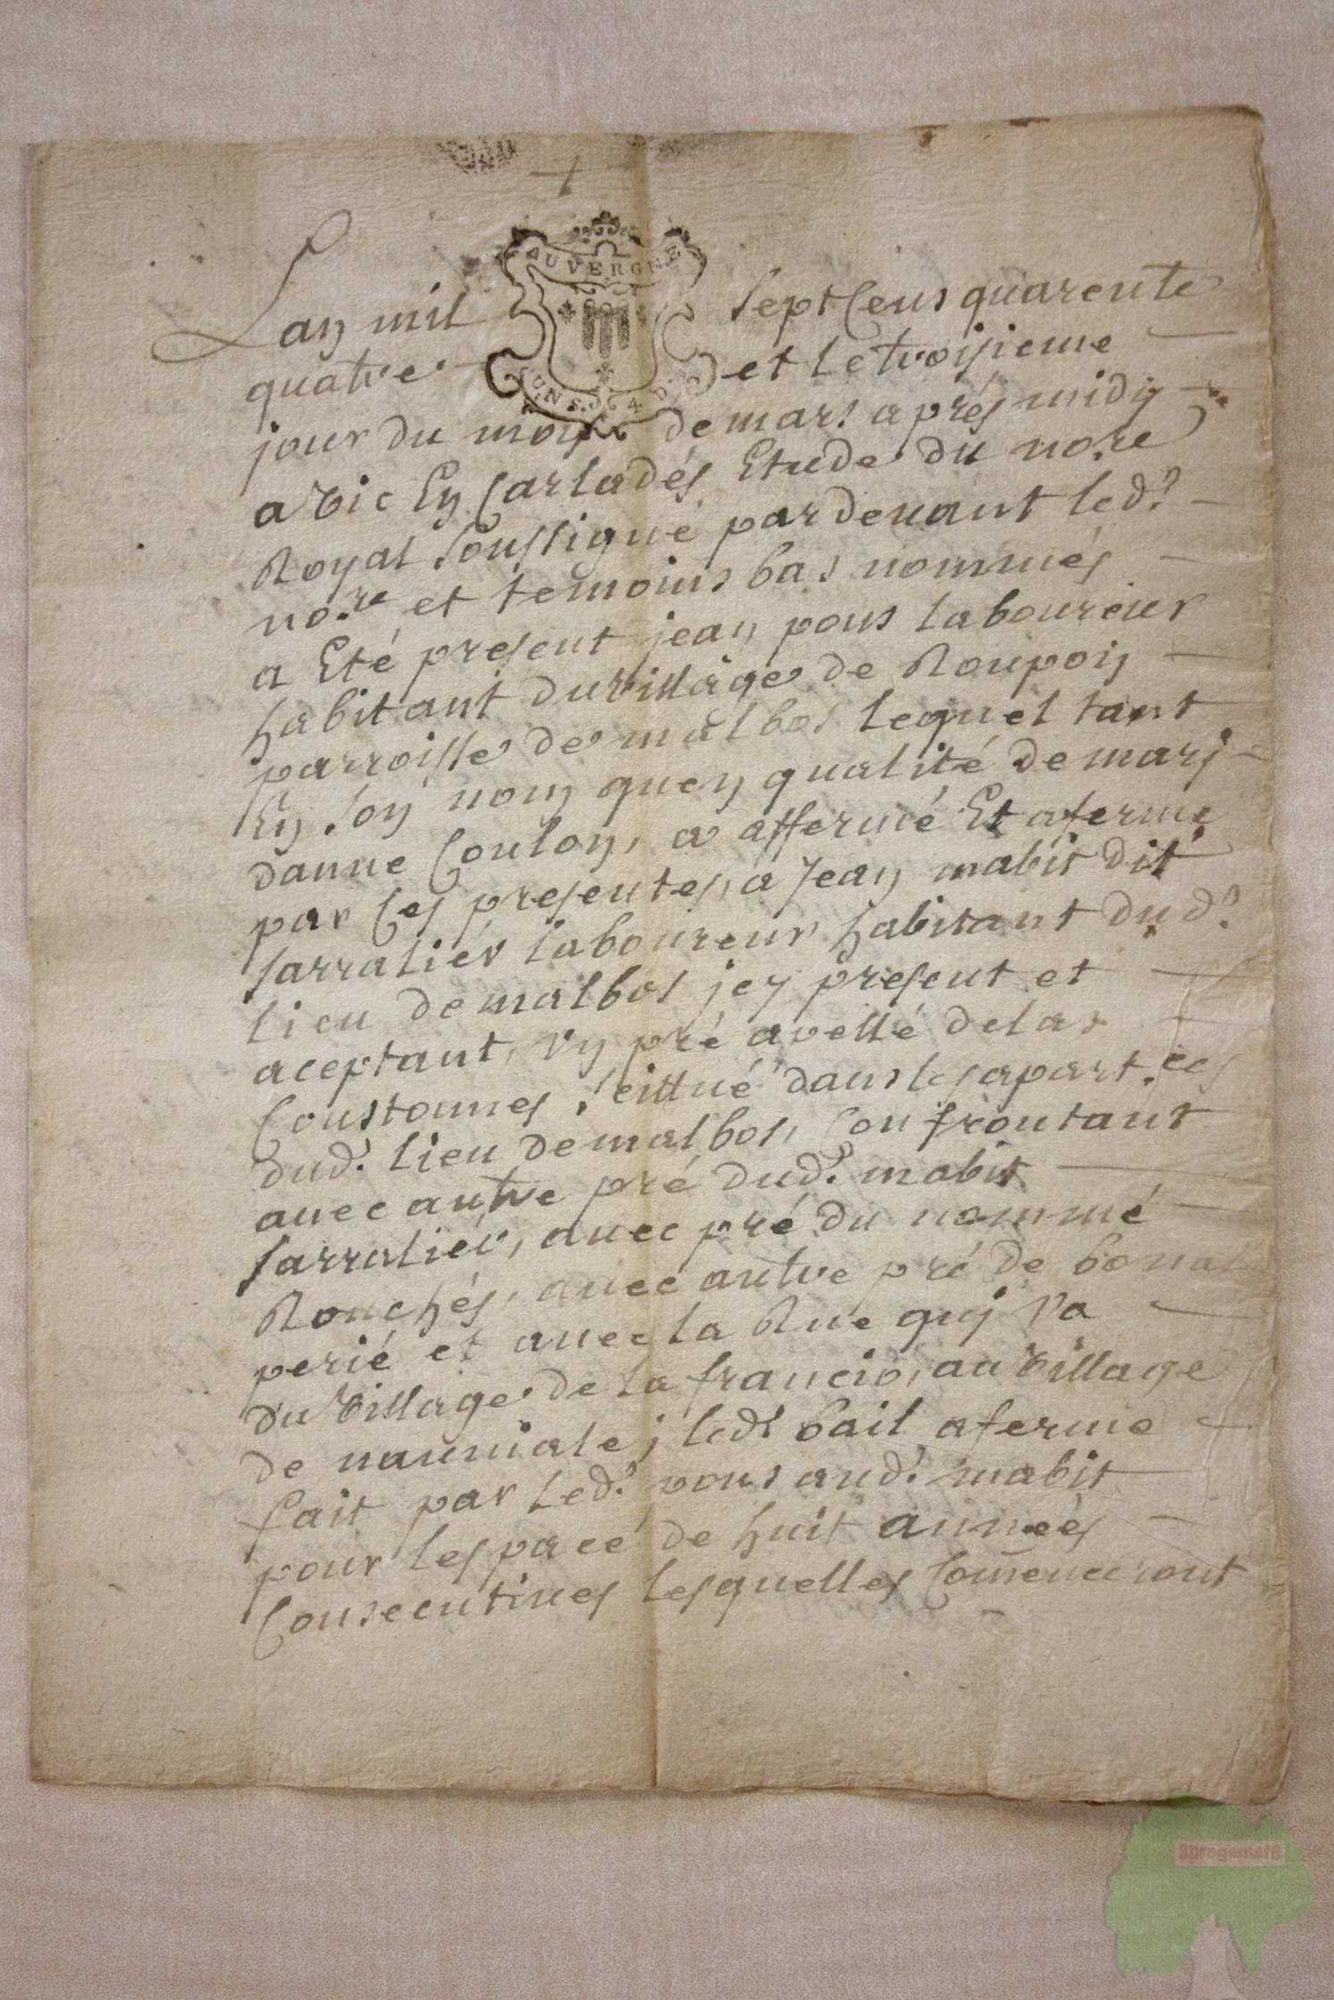 AUVERGNE
UN S. 4 D.
Lan mil sept Cens quarente
quatre et le troisieme
jour du mois de mars aprés midy
a Vic En Carladés Etude du no.re
Royal soussigné pardevant led.t
no.re et temoins bas nommés
a Eté present jean pous laboureur
habitant du village de Roupon
parroisse de malbos lequel tant
En son nom quen qualité de mary
danne Coulon, a affermé Et aferme
par Ces presentes, a Jean mabit dit
sarraliér laboureur habitant dud.t
lieu de malbos jcy present et
aceptant, vn pré apellé de las
Coustounes, scittué dans les apart.ces
dud.t lieu de malbos, Confrontant
avec autre pré dud.t mabit
sarraliér, avec pré du nommé
Rouchés, avec autre pré de bonal
perié et avec la Rue quj va
du village de la francio, au village
de nauniale; led.t bail aferme
fait par led.t pous aud.t mabit
pour lespace de huit années
Consecutives lesquelles Comenceront
aprogemere